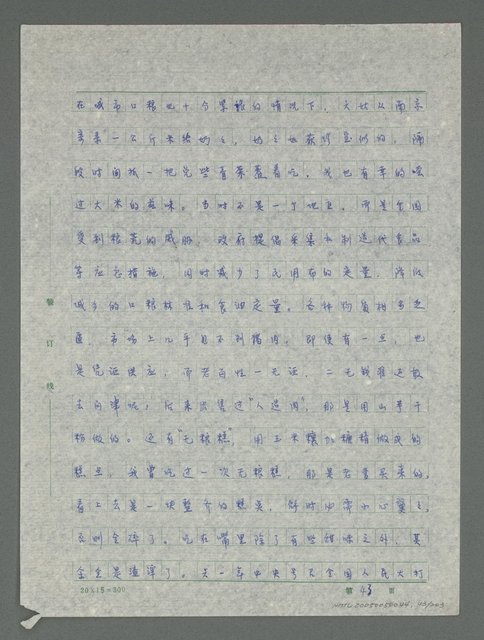 在城市口粮也十分紧张的情况下，大姑从南京
寄来一公斤米给奶奶，奶奶如获珍宝似的，隔
段时间抓一把兑些青菜熬着吃，我也有幸的喝
过大米的滋味。当时不是一个地主，而是全国
受到粮荒的威胁，政府提倡采集和制造代食品
等应急措施，同时减少了民用布的定量，降低
城乡的口粮标准和食油定量。各种物资相当乏
匮，市场上几乎见不到猪肉，即使有一点，也
是凭证供应，而老百姓一无证，二无钱谁还敢
去问津呢；后来出售过"人造肉"，那是用山芋干
粉做的。还有"无粮糕"，用玉米糠加糖精做成的
糕点，我曾吃过一次无粮糕，那是爸爸买来的，
看上去是一块整齐的糕点，但时必需小心翼翼，
否则会碎了。吃在嘴里除了有些甜味之外，其
余全是渣滓了。大一年中央号召全国人民大打
装
订
线
20×15=300
第 43 页